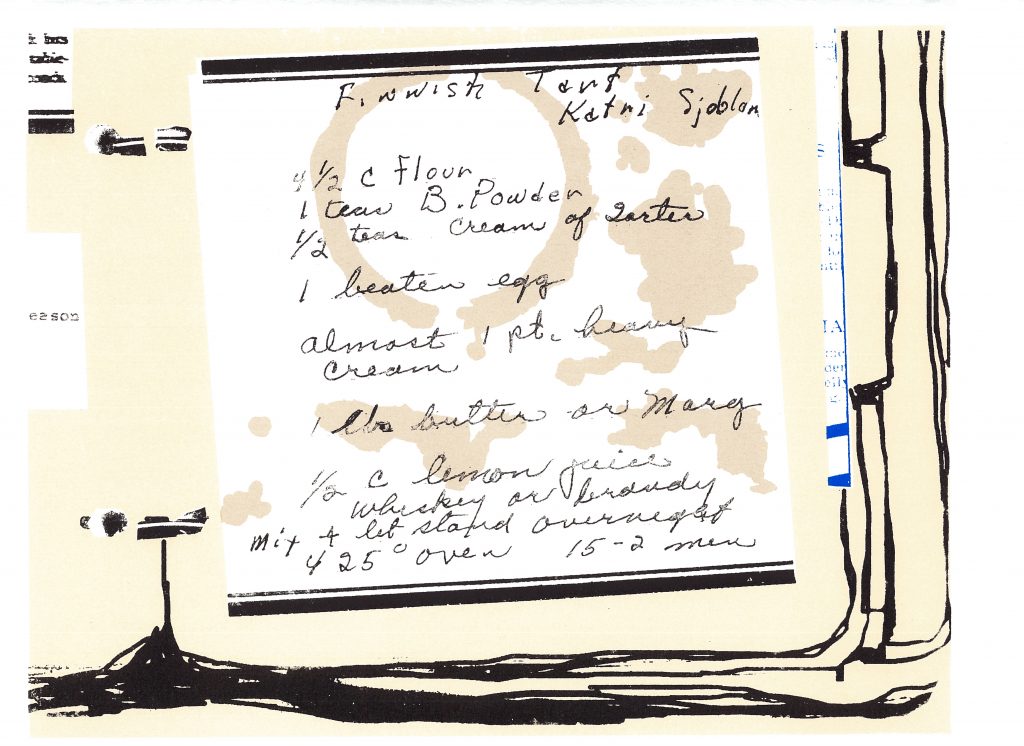 Finnish Tart
Katri Sjoblom
4 1/2 c Flour
1 teas B. Powder
1/2 teas cream of Tarter
1 beaten egg
almost 1 pt. heavy
cream
1 lb butter or Marg
1/2 c lemon juice
whiskey or brandy
mix + let stand overnight
425° oven 15-2 min
eason